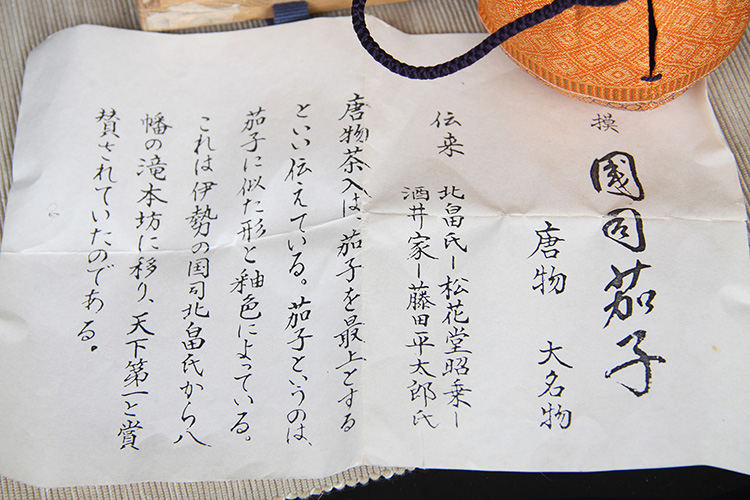 摸
國司茄子
唐物 大名物
伝来
北畠氏ー松花堂昭乗ー
酒井家ー藤田平太郎氏
唐物茶入は、茄子を最上とする
といい伝えている。茄子というのは、
茄子に似た形と釉色によっている。
これは伊勢の国司北畠氏から八
幡の滝本坊に移り、天下第一と賞
賛されていたのである。